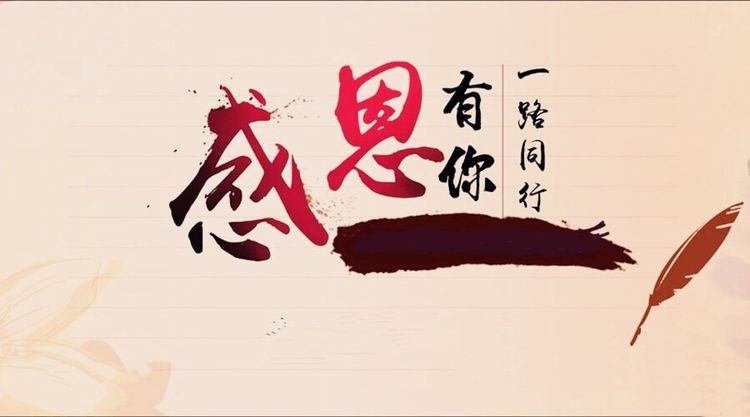 感恩
有你
一路同行